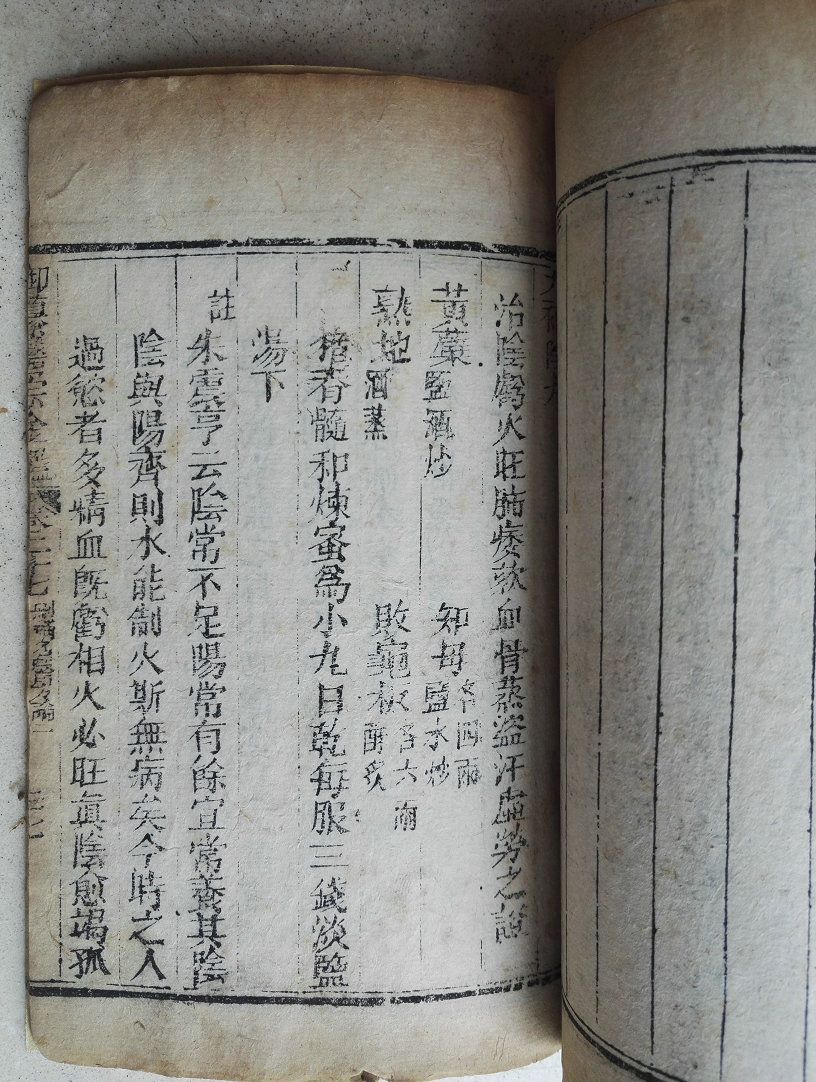 大補陰丸
治陰虧火旺肺痿欬血骨蒸盜汗虛勞之證
黃蘗鹽酒炒 知母鹽水炒各四兩
熟地酒蒸 敗龜板酥炙各六兩
猪脊髓和煉蜜為小丸日乾每服三錢淡鹽
湯下
註 朱震亨云陰常不足陽常有餘宜常養其陰
陰與陽齊則水能制火斯無病矣今時之人
過慾者多精血既虧相火必旺真陰愈竭孤
御纂醫宗金鑑 卷二十七 刪補名醫方論